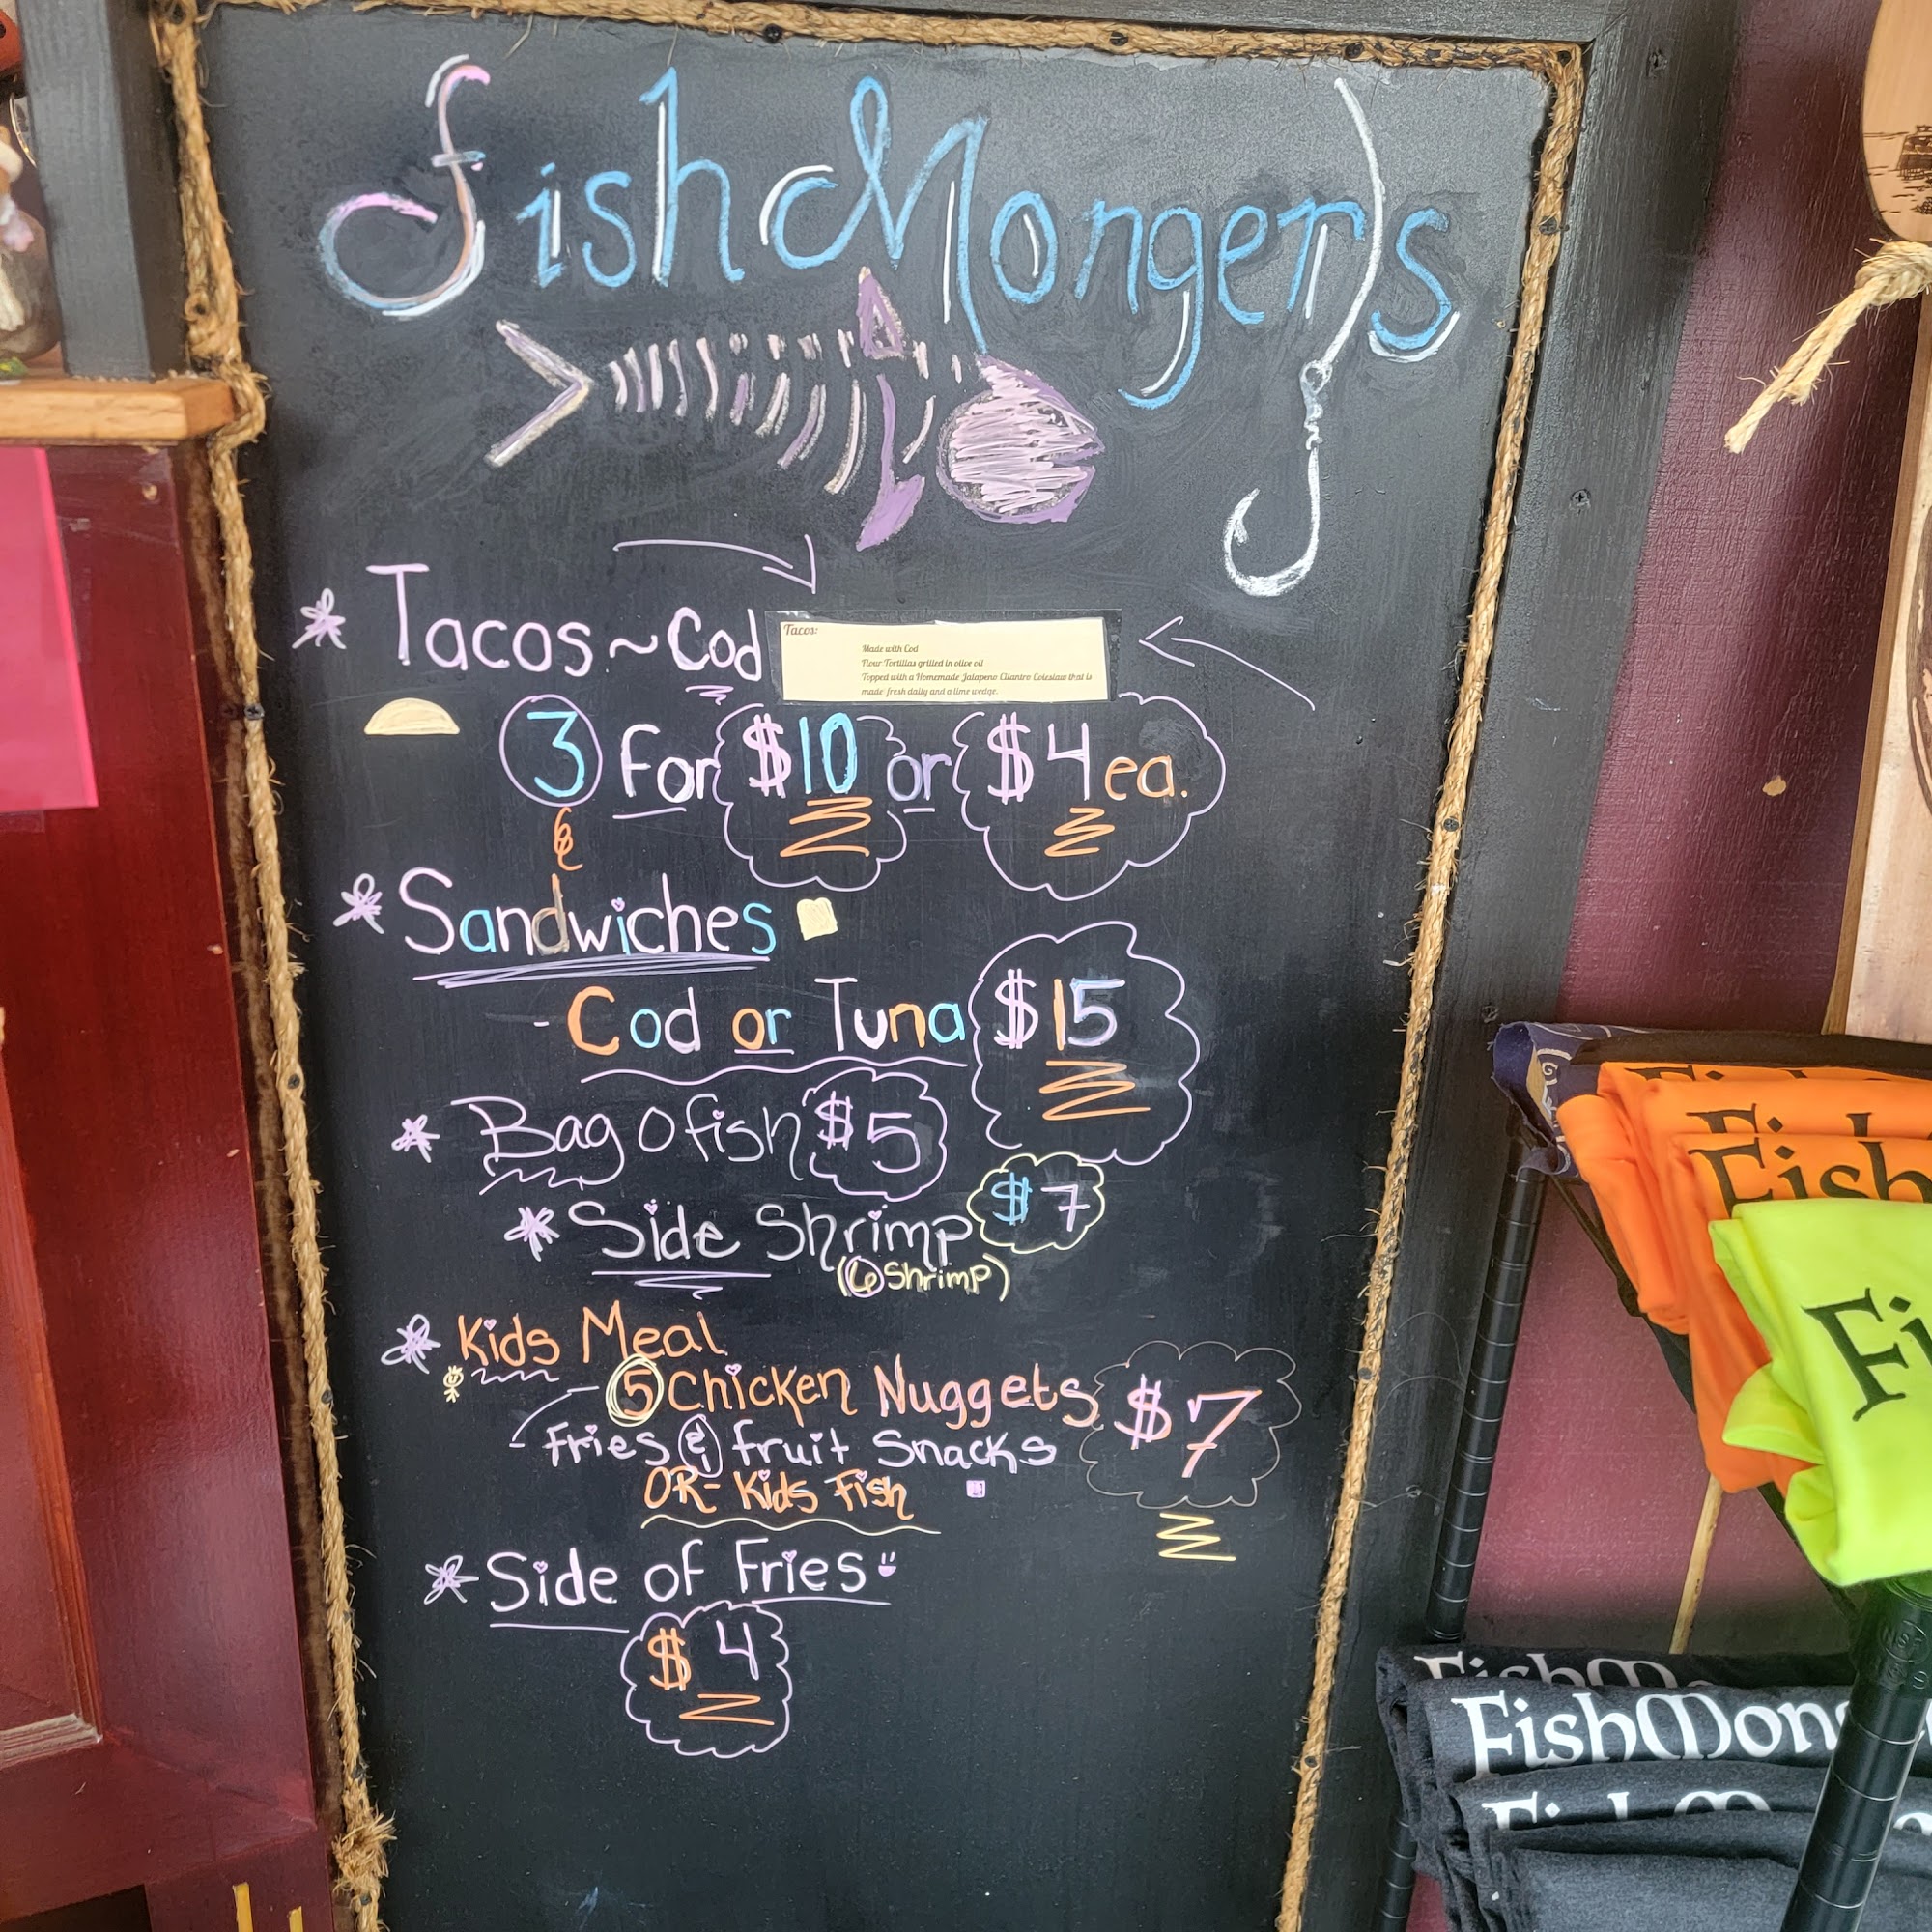 FishMongers
Tacos ~ Cod
Tacos:
Made with Cod
Flour Tortillas grilled in olive oil
Topped with a Homemade Jalapeno Cilantro Coleslaw that is
made fresh daily and a lime wedge.
3 For $10 or $4 ea.
Sandwiches
- Cod or Tuna $15
Bag O fish $5
Side Shrimp $7
(6 Shrimp)
Kids Meal
5 Chicken Nuggets $7
- Fries & fruit Snacks
OR - Kids Fish
Side of Fries
$4
Fish
Fish
Fi
FishMo
FishMong
FishM